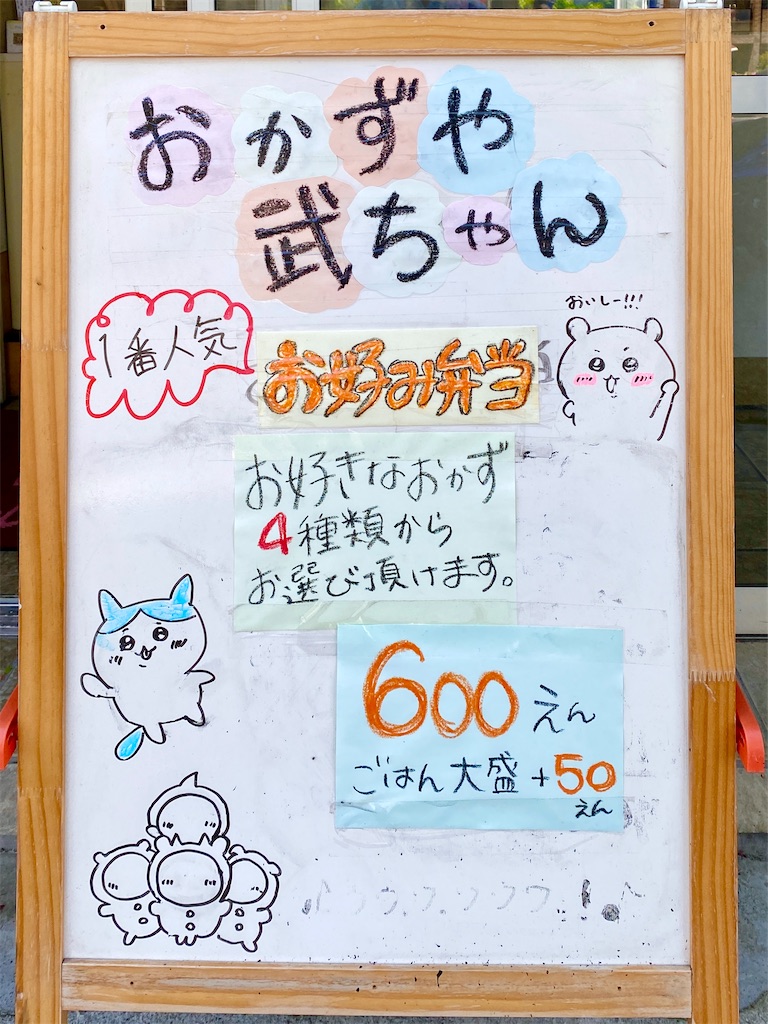 おかずや
武ちゃん
おいしー!!!
1番人気
お好み弁当
お好きなおかず
4種類から
お選び頂けます。
600えん
ごはん大盛+50
えん